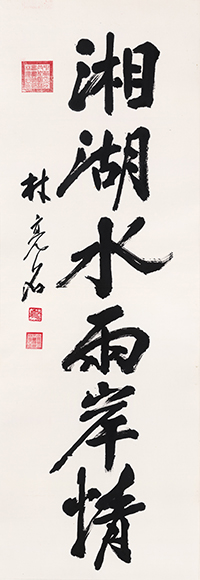 湘湖水兩岸情
林亮岩